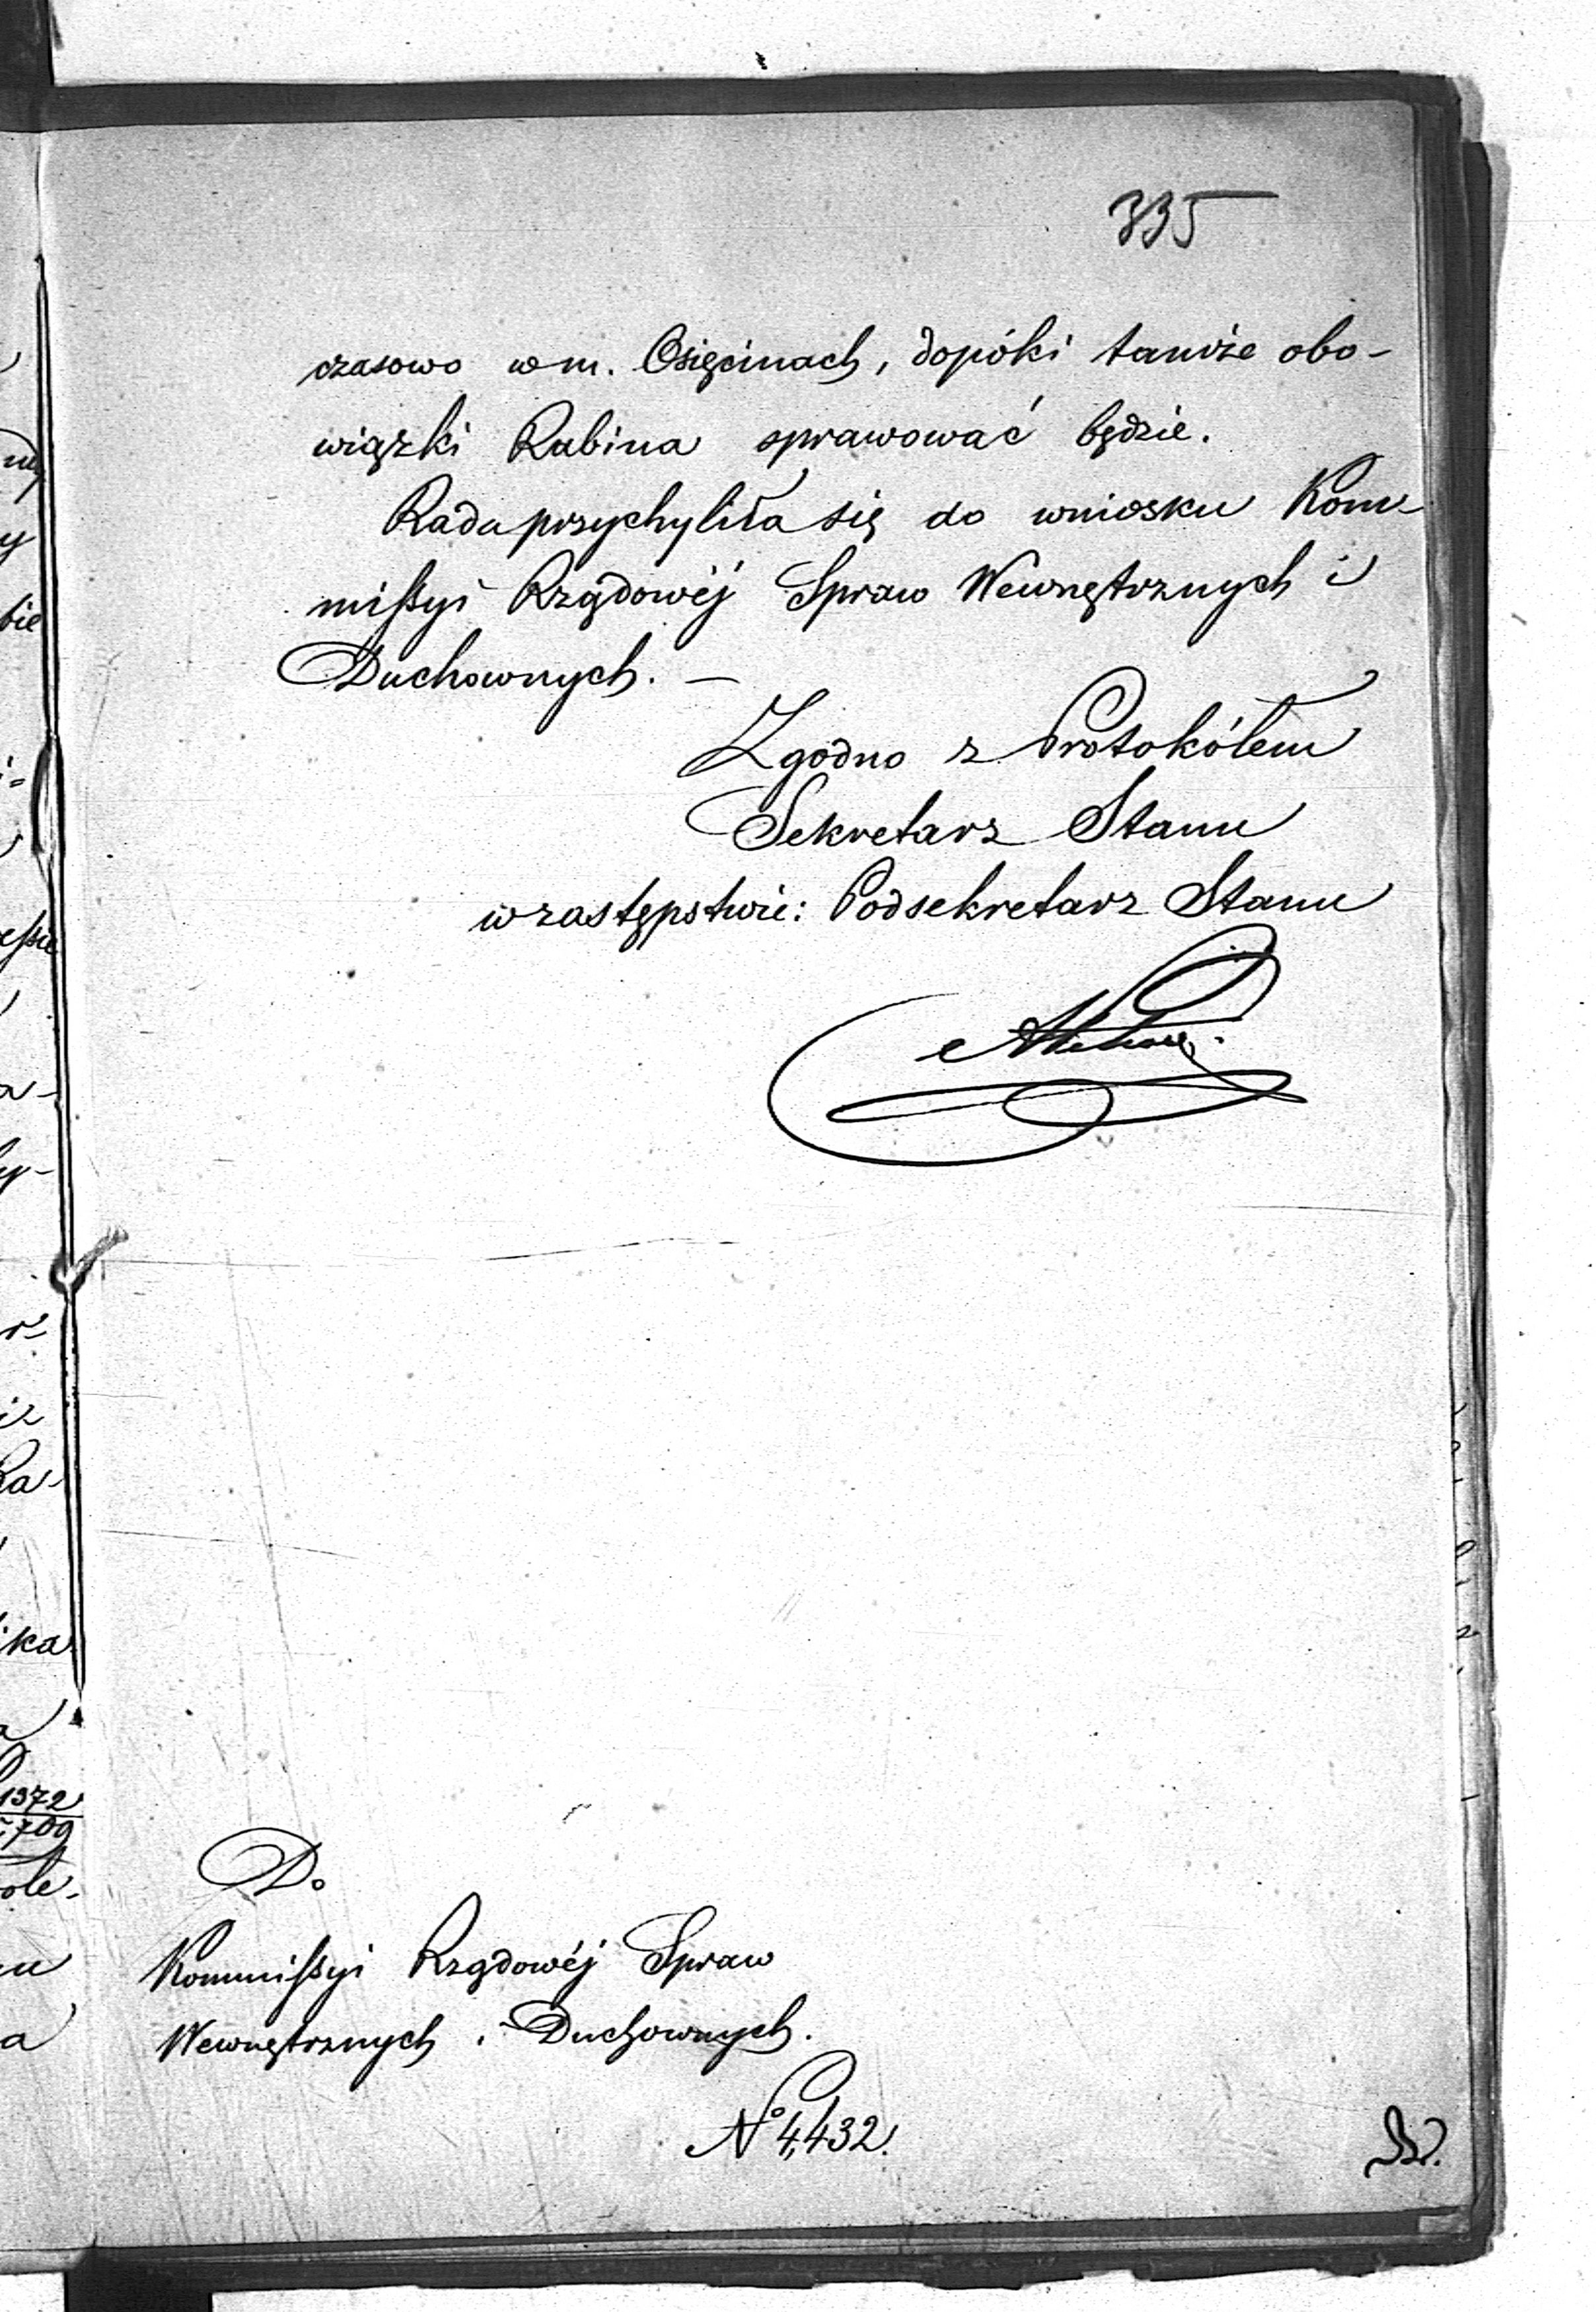 335
czasowo w m. Osięcinach, dopóki tamże obo-
wiązki Rabina sprawować będzie.
Rada przychyliła się do wniosku Kom-
missyi Rządowéj Spraw Wewnętrznych i
Duchownych. —
Zgodno z Protokółem
Sekretarz Stanu
w zastępstwie: Podsekretarz Stanu
Do
Kommissyi Rządowéj Spraw
Wewnętrznych i Duchownych.
No 4,432.